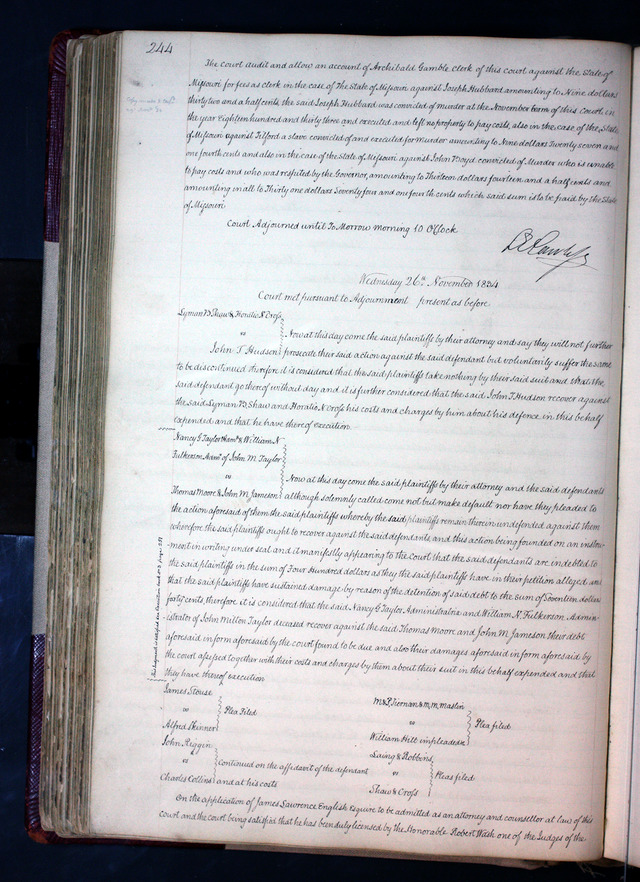 244
The Court audit and allow an account of Archibald Gamble clerk of this court against the State of
Missouri for fees as clerk in the case of The State of Missouri against Joseph Hubbard amounting to Nine dollars
thirty two and a half cents the said Joseph Hubbard was convicted of murder at the November term of this Court in
the year Eighteen hundred and thirty three and executed and left no property to pay costs, also in the case of the State
of Missouri against Tilford a slave convicted of and executed for murder amounting to Nine dollars Twenty seven and
one fourth cents and also in the case of the State of Missouri against John Boyd convicted of Murder who is unable
to pay costs and who was respited by the Governor, amounting to Thirteen dollars fourteen and a half cents and
amounting in all to Thirty one dollars Seventy four and one fourth cents which said sum is to be paid by the State
of Missouri
Court Adjourned until To Morrow morning 10 O'Clock
Wednesday 26th November 1834
Court met pursuant to Adjournment present as before
Lyman B Shaw & Horatio N Cross
vs
John T. Hudson
Now at this day come the said plaintiffs by their attorney and say they will not further
prosecute their said action against the said defendant but voluntarily suffer the same
to be discontinued therefore it is considered that the said plaintiffs take nothing by their said suit and that the
said defendant go thereof without day and it is further considered that the said John T Hudson recover against
the said Lyman B. Shaw and Horatio N Cross his costs and charges by him about his defence in this behalf
expended and that he have thereof execution
Nancy G Taylor & William N
Fulkerson Admr of John M. Taylor
vs
Thomas Moore & John M. Jameson
Now at this day come the said plaintiffs by their attorney and the said defendants
although solemnly called come not but make default nor have they pleaded to
the action aforesaid of them the said plaintiffs whereby the said plaintiffs remain therein undefended against them
wherefore the said plaintiffs ought to recover against the said defendants and this action being founded on an instru-
ment in writing under seal and it manifestly appearing to the Court that the said defendants are indebted to
the said plaintiffs in the sum of Four Hundred dollars as they the said plaintiffs have in their petition alleged and
that the said plaintiffs have sustained damage by reason of the detention of said debt to the sum of Seventeen dollars
forty cents, therefore it is considered that the said Nancy G Taylor Administratrix and William N. Fulkerson Admin-
istrator of John Milton Taylor deceased recover against the said Thomas Moore and John M Jameson their debt
aforesaid in form aforesaid by the court found to be due and also their damages aforesaid in form aforesaid by
the court assessed together with their costs and charges by them about their suit in this behalf expended and that
they have thereof execution
James Stouse
vs
Alfred Skinner
Plea Filed
M & P Tiernan & M. M. Maslin
vs
William Hill impleaded &c
Plea filed
John Reggin
vs
Charles Collins
Continued on the affidavit of the defendant
and at his costs
Laing & Robbins
vs
Shaw & Cross
Pleas filed
On the application of James Lawrence English Esquire to be admitted as an attorney and counsellor at law of this
Court and the court being satisfied that he has been duly licensed by the Honorable Robert Wash one of the Judges of the